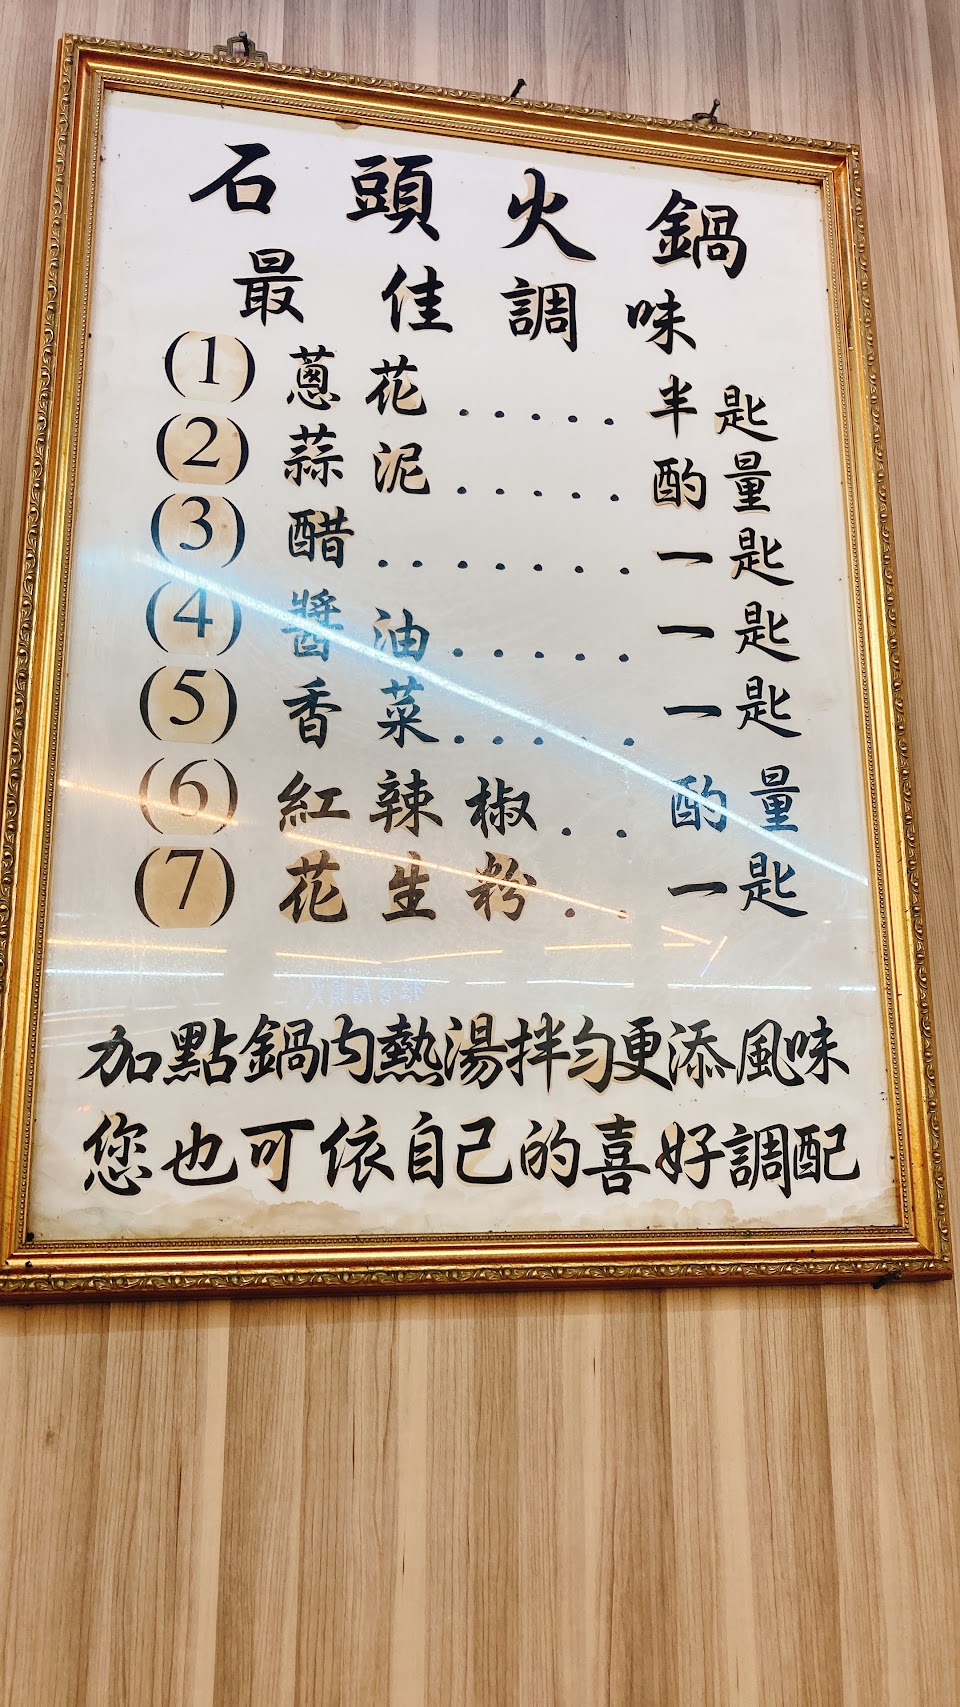 石頭火鍋
最佳調味
(1) 蔥花..... 半匙
(2) 蒜泥..... 酌量
(3) 醋....... 一匙
(4) 醬油..... 一匙
(5) 香菜..... 一匙
(6) 紅辣椒.. 酌量
(7) 花生粉.. 一匙
加點鍋內熱湯拌勻更添風味
您也可依自己的喜好調配